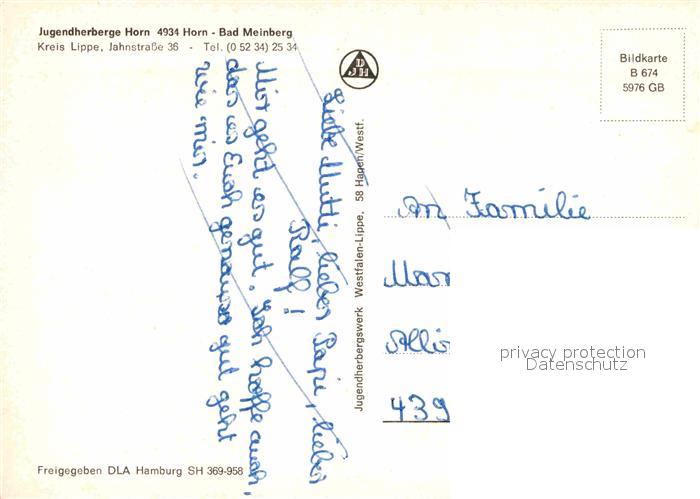 Jugendherberge Horn 4934 Horn - Bad Meinberg
Kreis Lippe, Jahnstraße 36 - Tel. (0 52 34) 25 34
DJH
Bildkarte
B 674
5976 GB
Liebe Mutti, lieber Papi, lieber
Ralf!
Mir geht es gut. Ich hoffe auch,
das es Euch genauso gut geht
wie mir.
Jugendherbergswerk Westfalen-Lippe, 58 Hagen/Westf.
An Familie
Mar
Alli
439
privacy protection
Datenschutz
Freigegeben DLA Hamburg SH 369-958